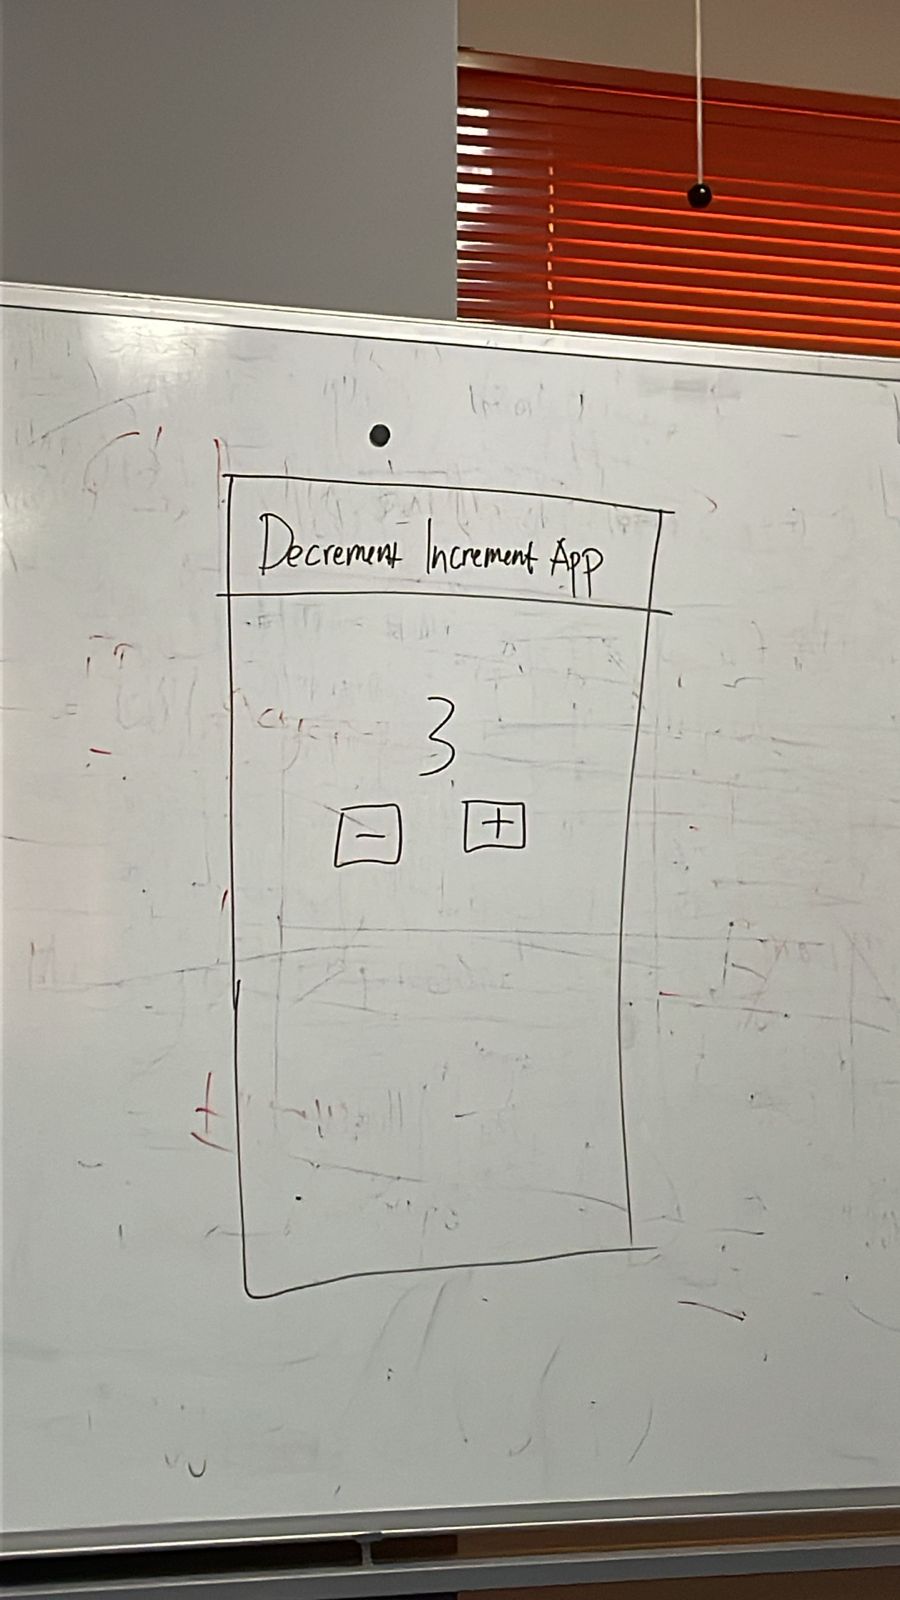 Decrement Increment App
3
- +